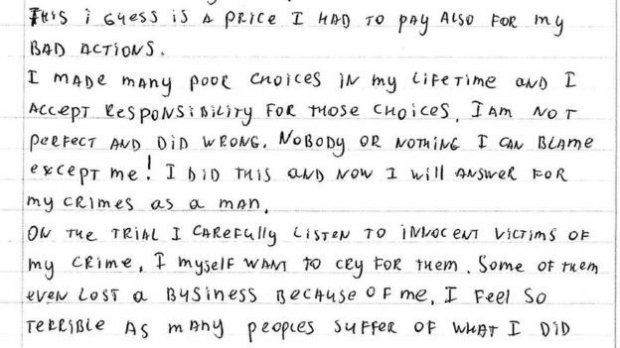 THIS i GUESS IS A PRICE I HAD TO PAY ALSO FOR my
BAD ACTIONS.
I MADE MANY POOR CHOICES IN my LIFETIME AND I
ACCEPT RESPONSIBILITY FOR THOSE CHOICES. I AM NOT
PERFECT AND DID WRONG. NOBODY OR NOTHING I CAN BLAME
except me! I DID THIS AND NOW I will ANSWER FOR
my CRIMES as a man.
ON THE TRIAL I CAREFULLY LISTEN TO INNOCENT VICTIMS OF
my CRIME, I myself WANT TO CRY FOR THEM. Some of THEM
even LOST a BUSINESS BECAUSE OF me, I FEEL SO
TERRIBLE AS MANY peoples SUFFER OF WHAT I DID